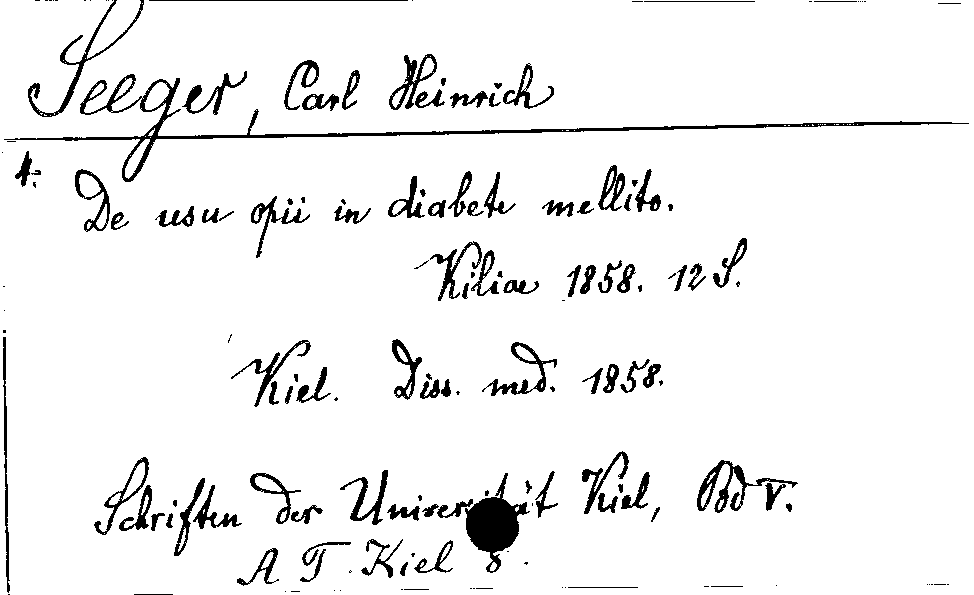 Seeger, Carl Heinrich
1.
De usu opii in diabete mellito.
Kiliae 1858. 12 S.
Kiel. Diss. med. 1858.
Schriften der Universität Kiel, Bd V.
A T. Kiel 8.